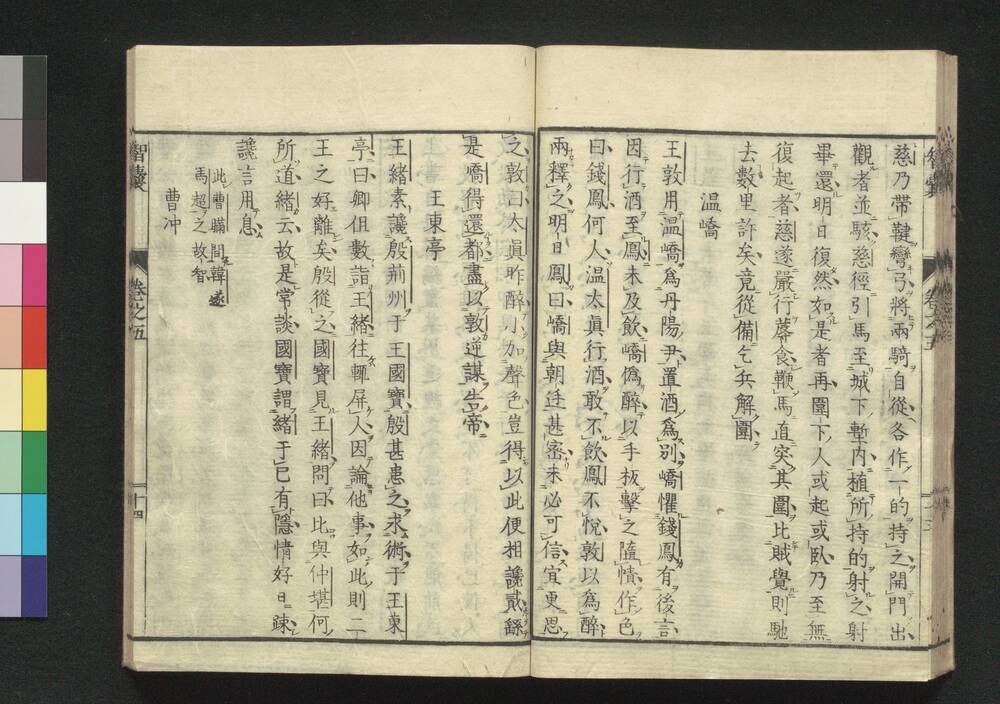 慈乃帶鞬彎弓將兩騎自從各作一的持之開門出
觀者並駭慈徑引馬至城下塹內植所持的射之射
畢還明日復然如是者再圍下人或起或臥乃至無
復起者慈遂嚴行蓐食鞭馬直突其圍比賊覺則馳
去數里許矣竟從備乞兵解圍
溫嶠
王敦用溫嶠為丹陽尹置酒為別嶠懼錢鳳有後言
因行酒至鳳未及飲嶠偽醉以手板擊之墮幘作色
曰錢鳳何人溫太眞行酒敢不飲鳳不悅敦以為醉
兩釋之明日鳳曰嶠與朝廷甚密未必可信宜更思
之敦曰太眞昨醉小加聲色豈得以此便相讒貳繇
是嶠得還都盡以敦逆謀告帝
王東亭
王緒素讒殷荊州于王國寶殷甚患之求術于王東
亭曰卿但數詣王緒往輒屏人因論他事如此則二
王之好離矣殷從之國寶見王緒問曰比與仲堪何
所道緒云故是常談國寶謂緒于己有隱情好日疎
讒言用息
此曹瞞間韓遂
馬超之故智
曹冲
智囊
卷之五
十四